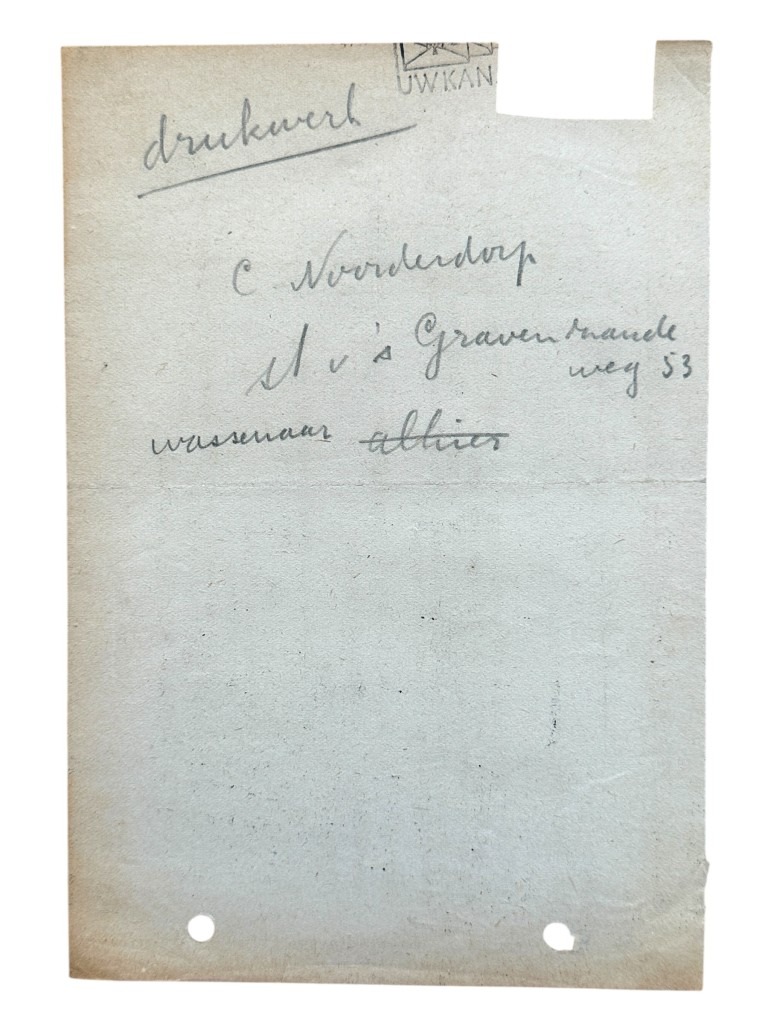 UW KAN
drukwerk
C Noorderdorp
st v 's Gravensande
weg 53
wassenaar alhier